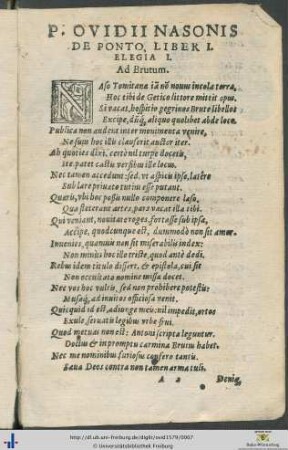 P. OVIDII NASONIS
DE PONTO, LIBER I.
ELEGIA I.
Ad Brutum.
NAso Tomitanæ iã nõ nouus incola terræ,
Hoc tibi de Getico littore mittit opus.
Si vacat, hospitio pegrinos Brute libellos
Excipe, dũq́, aliquo quolibet abde loco.
Publica non audent inter monimenta venire,
Ne suus hoc illis clauserit auctor iter.
Ah quoties dixi, certè nil turpe docetis,
ite, patet castis versibus ille locus.
Non tamen accedunt: sed, vt aspicis ipse, latère
Sub lare priuato tutius esse putant.
Quæris, vbi hos possis nullo componere læso,
Qua steterant artes, pars vacat illa tibi.
Qui veniant, nouitate roges, fortasse sub ipsa,
Accipe, quodcunque est, dummodò non sit amor.
Inuenies, quamuis non sit miserabilis index:
Non minùs hoc illo triste, quod antè dedi.
Rebus idem titulo differt, & epistola, cui sit
Non occultato nomine missa docet.
Nec vos hoc vultis, sed nec prohibere potestis:
Musaq́, ad inuitos officiosa venit.
Quicquid id est, adiunge meis, nil impedit, ortos
Exule, seruatis legibus vrbe frui.
Quod metuas non est: Antoni scripta leguntur.
Doctus & in promptu carmina Brutus habet.
Nec me nominibus furiosus confero tantis.
Sæua Deos contra non tamen arma tuli.
A 2 Deniq́;
http://dl.ub.uni-freiburg.de/diglit/ovid1579/0007
© Universitätsbibliothek Freiburg